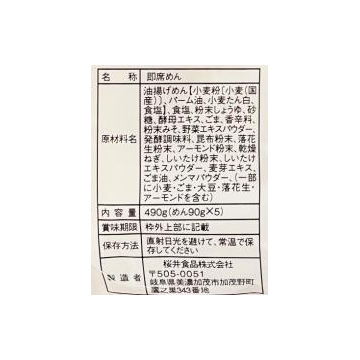 名 称 即席めん
原材料名 油揚げめん【小麦粉（小麦（国
産））、パーム油、小麦たん白、
食塩】、食塩、粉末しょうゆ、砂
糖、酵母エキス、ごま、香辛料、
粉末みそ、野菜エキスパウダー、
発酵調味料、昆布粉末、落花
生粉末、アーモンド粉末、乾燥
ねぎ、しいたけ粉末、しいたけ
エキスパウダー、麦芽エキス、
ごま油、メンマパウダー、（一部
に小麦・ごま・大豆・落花生・
アーモンドを含む）
内 容 量 490g（めん90g×5）
賞味期限 枠外上部に記載
保存方法 直射日光を避けて、常温で保
存してください
製造者 桜井食品株式会社
〒505-0051
岐阜県美濃加茂市加茂野町
鷹之巣343番地